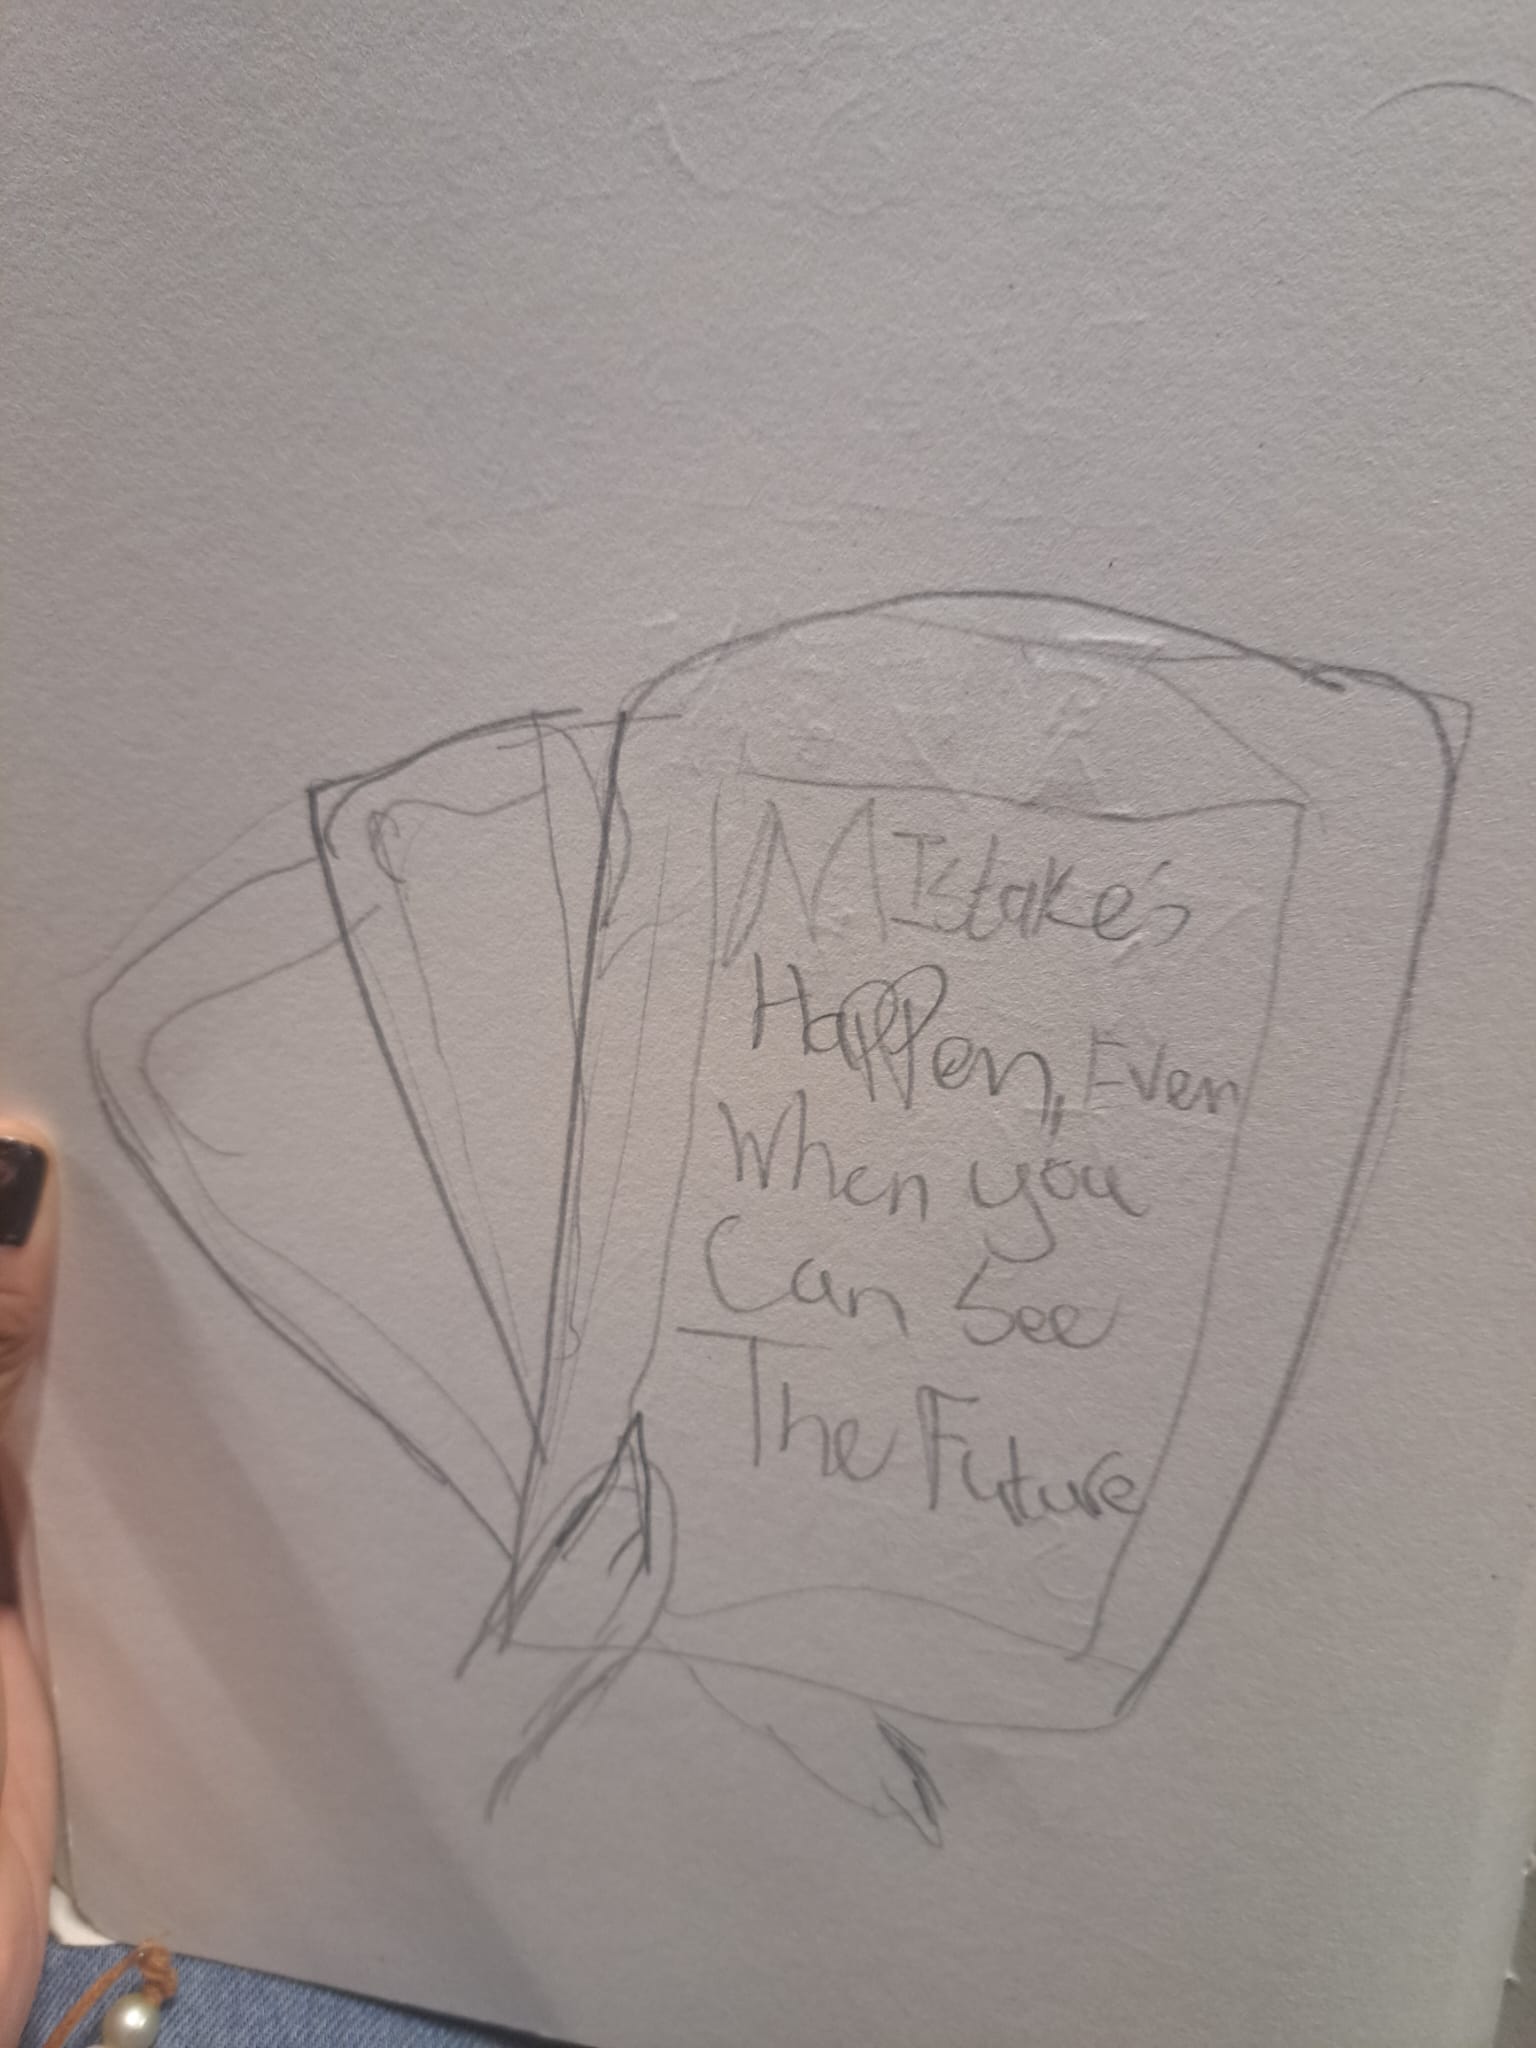 MIstake's
Happen, Even
When you
Can See
The Future